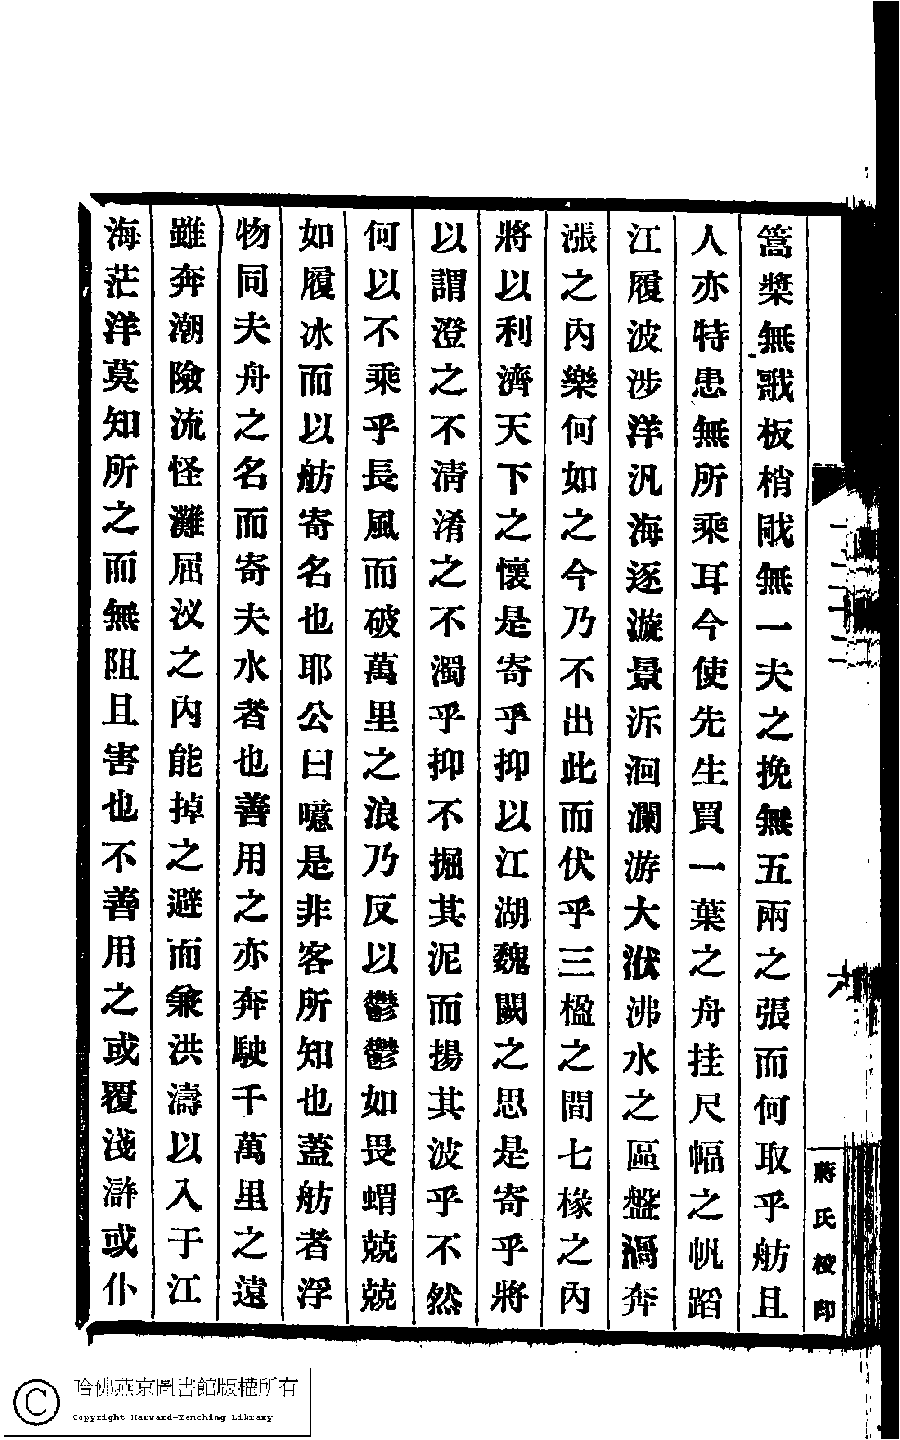 篙槳無戩板梢戙無一夫之挽無五兩之張而何取乎舫且
人亦特患無所乘耳今使先生買一葉之舟挂尺幅之帆蹈
江履波涉洋汎海逐漩景泝洄瀾游大洑沸水之區盤渦奔
漲之內樂何如之今乃不出此而伏乎三楹之間七椽之內
將以利濟天下之懷是寄乎抑以江湖魏闕之思是寄乎將
以謂澄之不清淆之不濁乎抑不掘其泥而揚其波乎不然
何以不乘乎長風而破萬里之浪乃反以鬱鬱如畏蝟兢兢
如履冰而以舫寄名也耶公曰噫是非客所知也蓋舫者浮
物同夫舟之名而寄夫水者也善用之亦奔駛千萬里之遠
雖奔潮險流怪灘屈汊之內能掉之避而乘洪濤以入于江
海茫洋莫知所之而無阻且害也不善用之或覆淺滸或仆
蔣氏校印
哈佛燕京圖書館版權所有
Copyright Harvard-Yenching Library